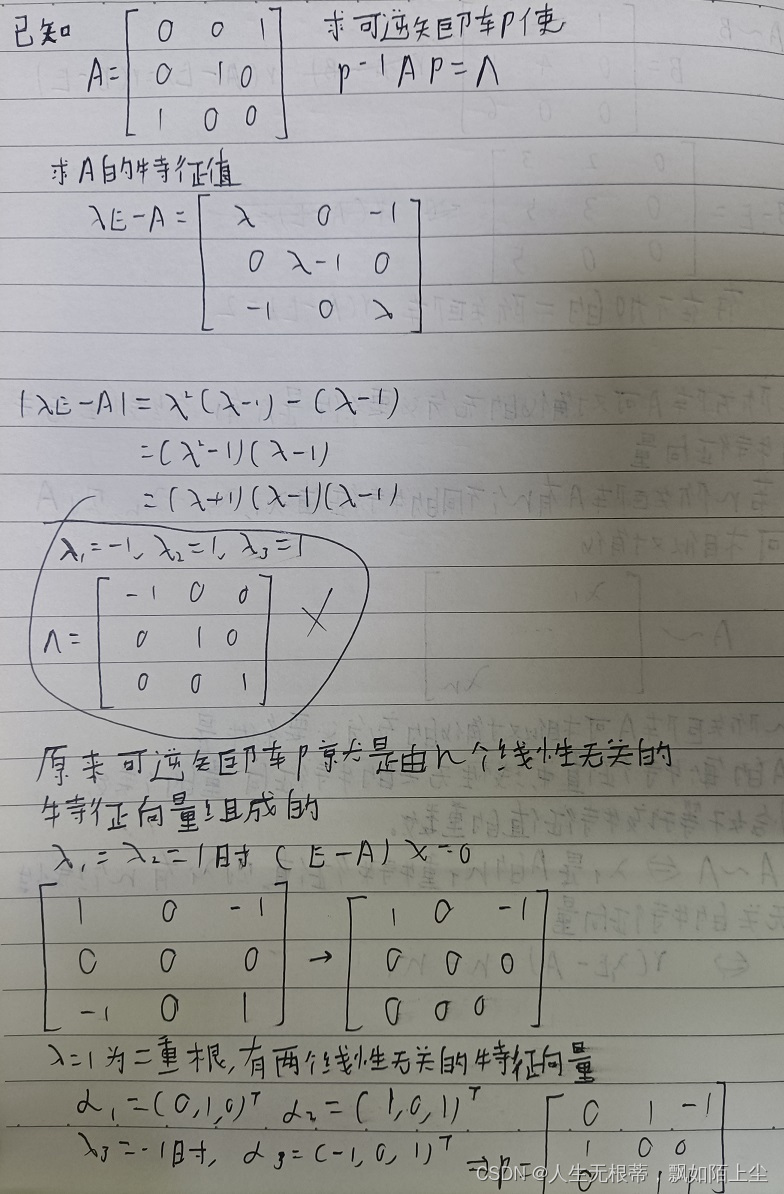 已知 A= [ 0 0 1 求可逆矩阵P使
0 1 0 p-1AP=Λ
1 0 0 ]
求A的特征值
λE-A= [ λ 0 -1
0 λ-1 0
-1 0 λ ]
|λE-A|=λ²(λ-1)-(λ-1)
=(λ²-1)(λ-1)
=(λ+1)(λ-1)(λ-1)
λ₁=-1, λ₂=1, λ₃=1
Λ= [ -1 0 0
0 1 0 ×
0 0 1 ]
原来可逆矩阵P就是由n个线性无关的
特征向量组成的
λ₁=λ₂=1时 (E-A)X=0
[ 1 0 -1 [ 1 0 -1
0 0 0 → 0 0 0
-1 0 1 ] 0 0 0 ]
λ=1为二重根,有两个线性无关的特征向量
α₁=(0,1,0)ᵀ α₂=(1,0,1)ᵀ
λ₃=-1时, α₃=(-1,0,1)ᵀ ⇒P= [ 0 1 -1
1 0 0
CSDN @人生无根蒂,飘如陌上尘